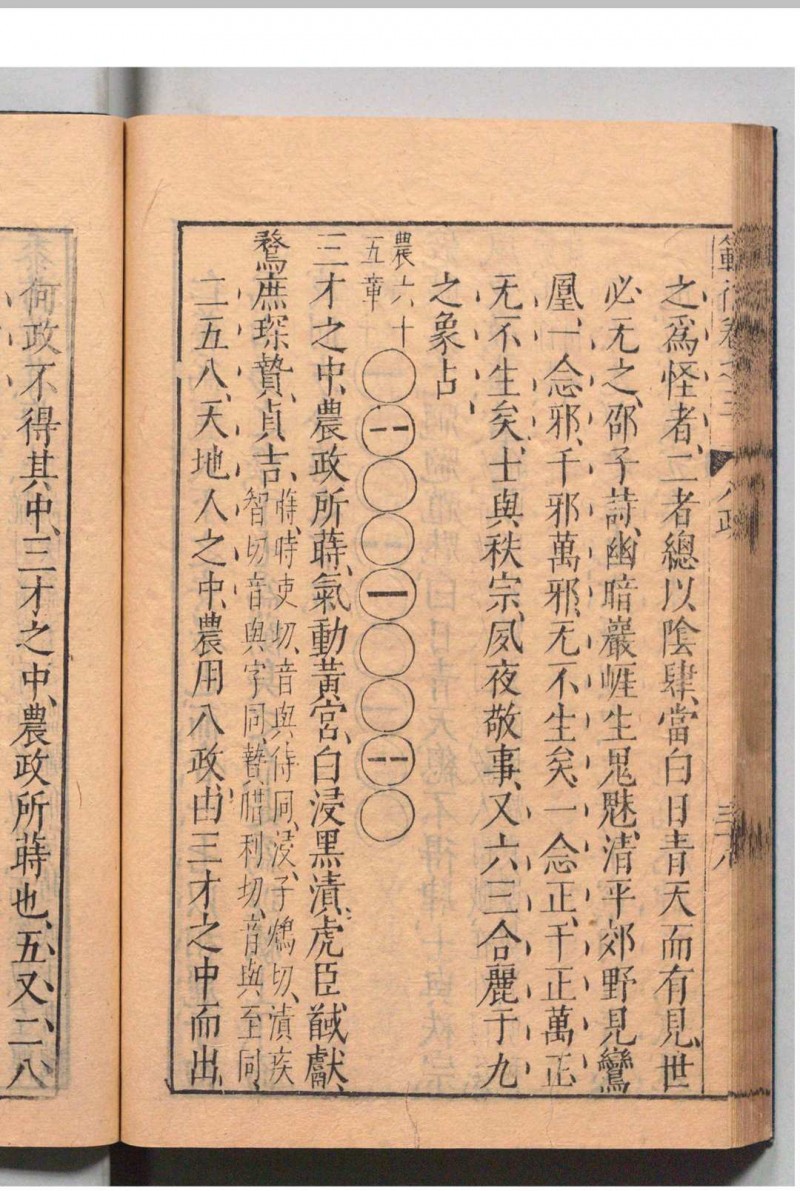 範衍卷之三 八政 三十八
之爲怪者、二者總以陰肆、當白日青天而有見、世
必无之、邵子詩、幽暗巖崕生鬼魅、清平郊野見鸞
凰、一念邪、千邪萬邪、无不生矣、一念正、千正萬正
无不生矣、士與秩宗、夙夜敬事、又六三合麗于九
之象占、
農六十
五章
三才之中、農政所蒔、氣動黃宮、白浸黑漬、虎臣馘獻、
鶩庶琛贄、貞吉、
蒔、時吏切、音與侍同、浸、子鴆切、漬疾
智切、音與字同、贄、𦙶利切、音與至同、
二五八、天地人之中、農用八政、由三才之中而出、
何政不得其中、三才之中、農政所蒔也、五又二八